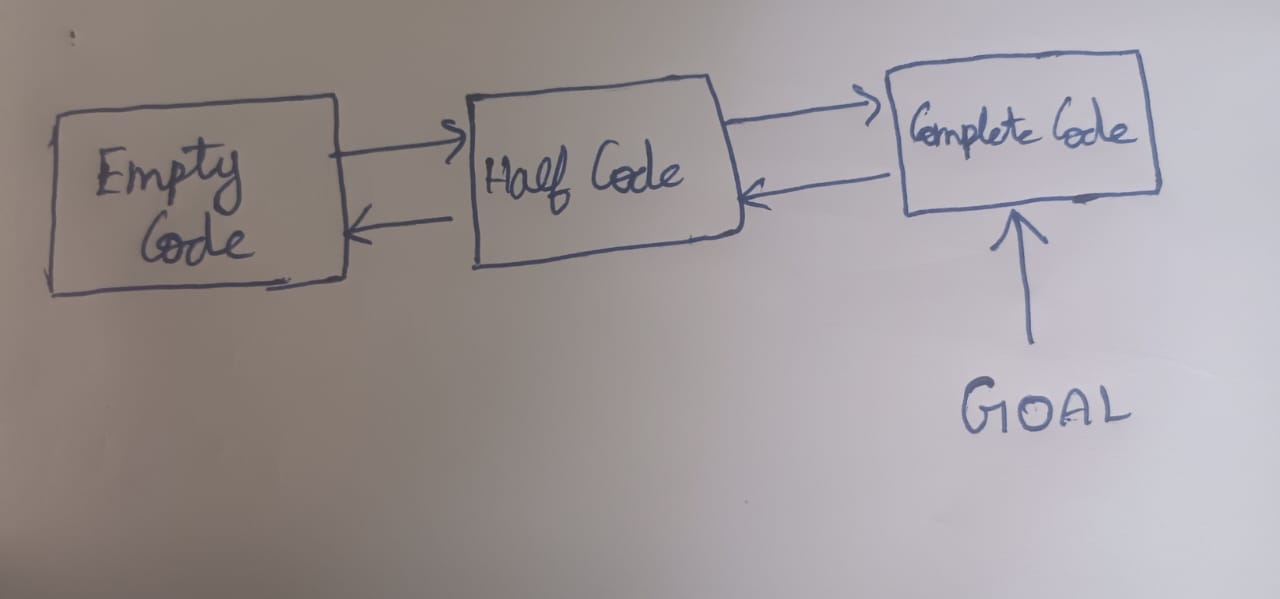 Empty
Code
Half Code
Complete Code
GOAL